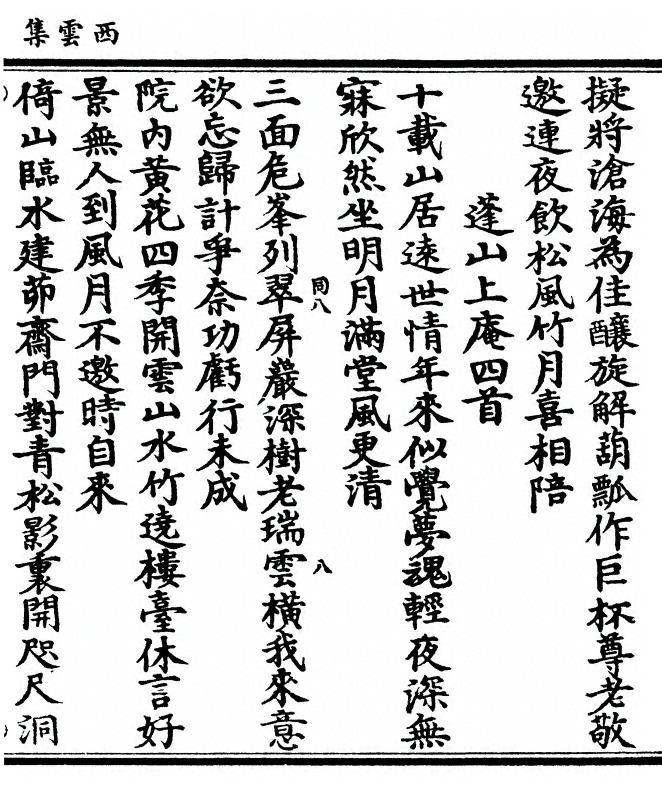 西雲集
擬將滄海為佳釀旋解葫瓢作巨杯尊老敬
邀連夜飲松風竹月喜相陪
蓬山上庵四首
十載山居遠世情年來似覺夢魂輕夜深無
寐欣然坐明月滿堂風更清
三面危峯列翠屏巖深樹老瑞雲橫我來意
欲忘歸計爭奈功虧行未成
院内黃花四季開雲山水竹遶樓臺休言好
景無人到風月不邀時自來
倚山臨水建茆齋門對青松影裏開咫尺洞
同八
八